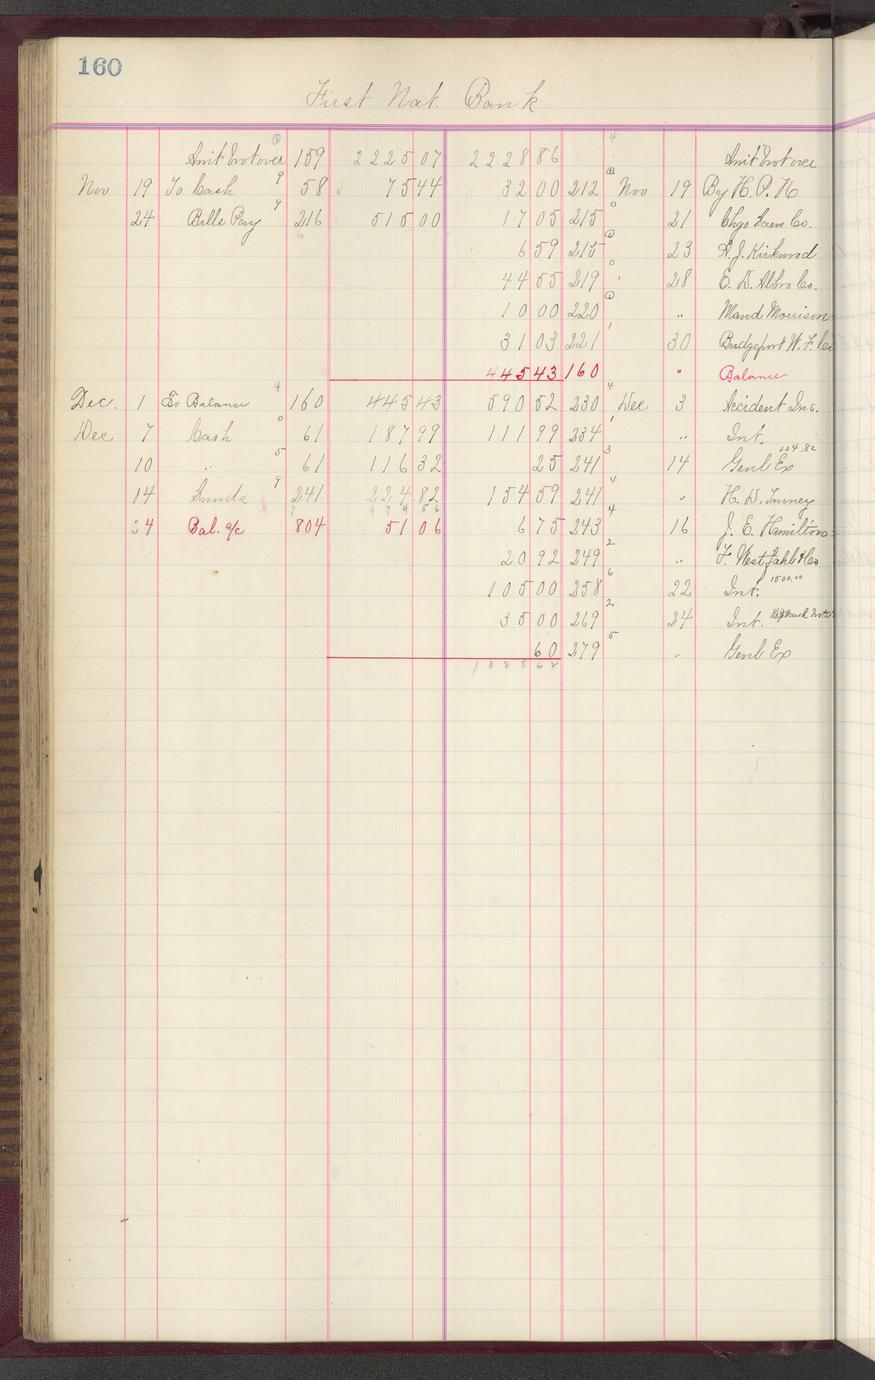 160
First Nat. Bank
Am't Brot over 159 2225 07 2228 86 Am't Brot over
Nov 19 To Cash 9 58 75 44 32 00 212 Nov 19 By H. P. H
24 Bills Pay 9 216 515 00 17 05 215 21 Chgo Screw Co.
6 59 215 23 R. J. Kirkwood
44 55 219 28
10 00 220 " Maud Morrison
31 03 221 30 Bridgeport W. F. Co
445 43 160 " Balance
Dec. 1 To Balance 4 160 445 43 590 52 230 Dec 3 Accident Ins.
Dec 7 Cash 0 61 187 99 111 99 234 " Int.
10 " 5 61 116 32 25 241 14 Genl Ex
14 Sunds 9 241 224 82 154 59 241 " H. D.
979 56
24 Bal. a/c 804 51 06 6 75 243 16 J. E. Hamilton
20 92 249 " F. Westfahl & Co
105 00 258 22 Int. 1500.00
35 00 269 24 Int.
60 279 " Genl Ex
1025 62